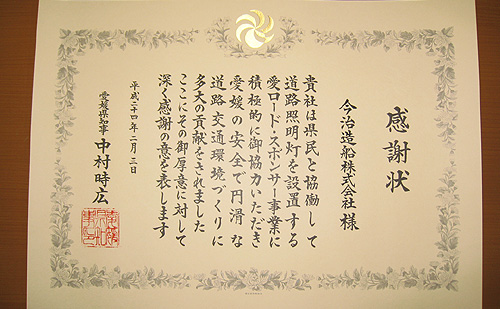 感謝状
今治造船株式会社 様
貴社は県民と協働して
道路照明灯を設置する
愛ロード・スポンサー事業に
積極的に御協力いただき
愛媛の安全で円滑な
道路交通環境づくりに
多大の貢献をされました
ここにその御厚意に対して
深く感謝の意を表します
平成二十四年二月三日
愛媛県知事 中村時広